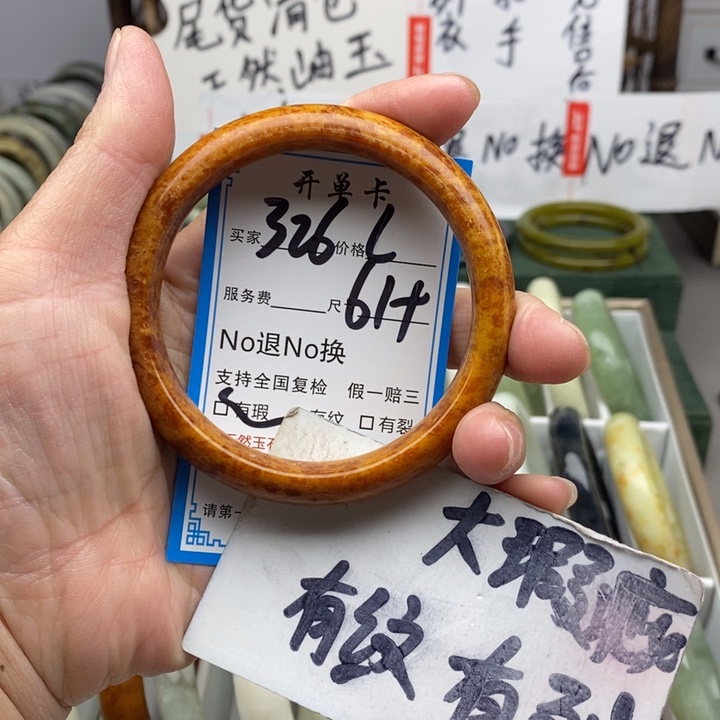 尾货清仓
天然岫玉
手
No换
No退
开单卡
买家 326 价格 L
服务费 尺 61+
No退No换
支持全国复检 假一赔三
□有瑕 □有纹 □有裂
天然玉石
请第一
大瑕疵
有纹 有裂